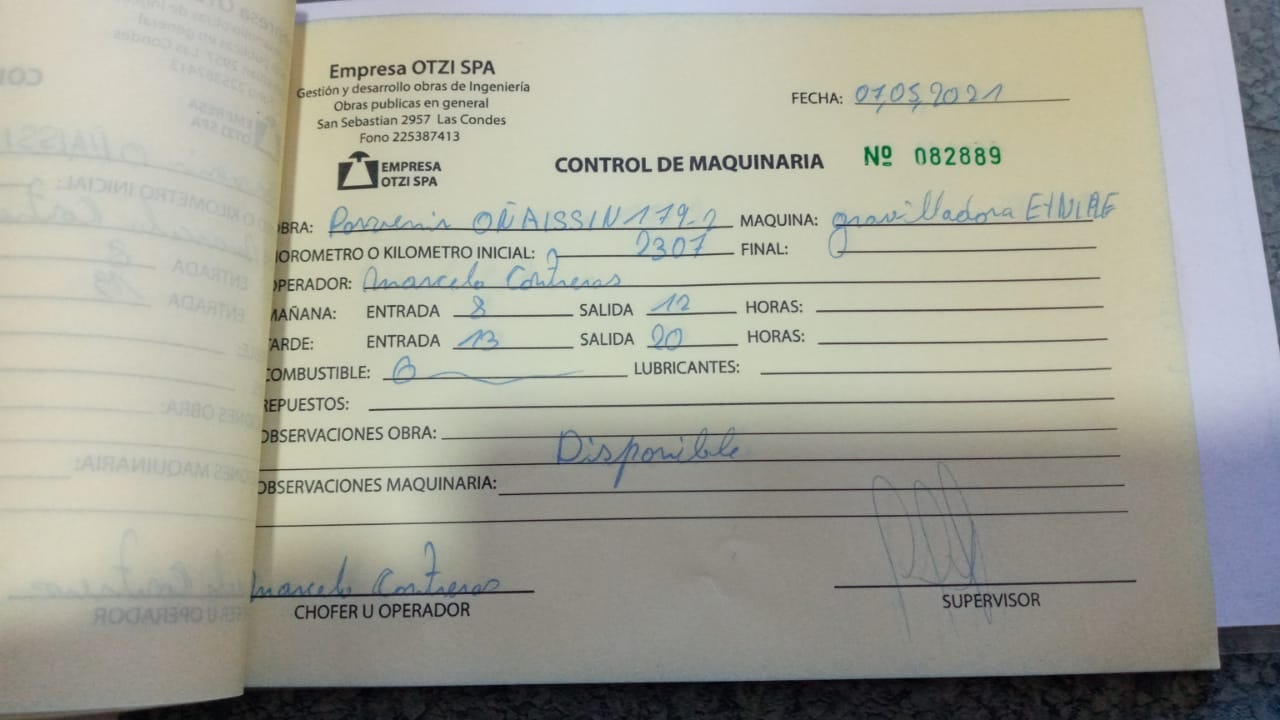 Empresa OTZI SPA
Gestión y desarrollo obras de Ingeniería
Obras publicas en general
San Sebastian 2957 Las Condes
Fono 225387413
EMPRESA
OTZI SPA
FECHA: 07,05,2021
CONTROL DE MAQUINARIA Nº 082889
OBRA: Porvenir OÑAISSIN 179-2 MAQUINA: gravilladora
HOROMETRO O KILOMETRO INICIAL: 2307 FINAL:
OPERADOR: Marcelo Contreras
MAÑANA: ENTRADA 8 SALIDA 12 HORAS:
TARDE: ENTRADA 13 SALIDA 20 HORAS:
COMBUSTIBLE: 0 LUBRICANTES:
REPUESTOS:
OBSERVACIONES OBRA:
Disponible
OBSERVACIONES MAQUINARIA:
Marcelo Contreras
CHOFER U OPERADOR
SUPERVISOR